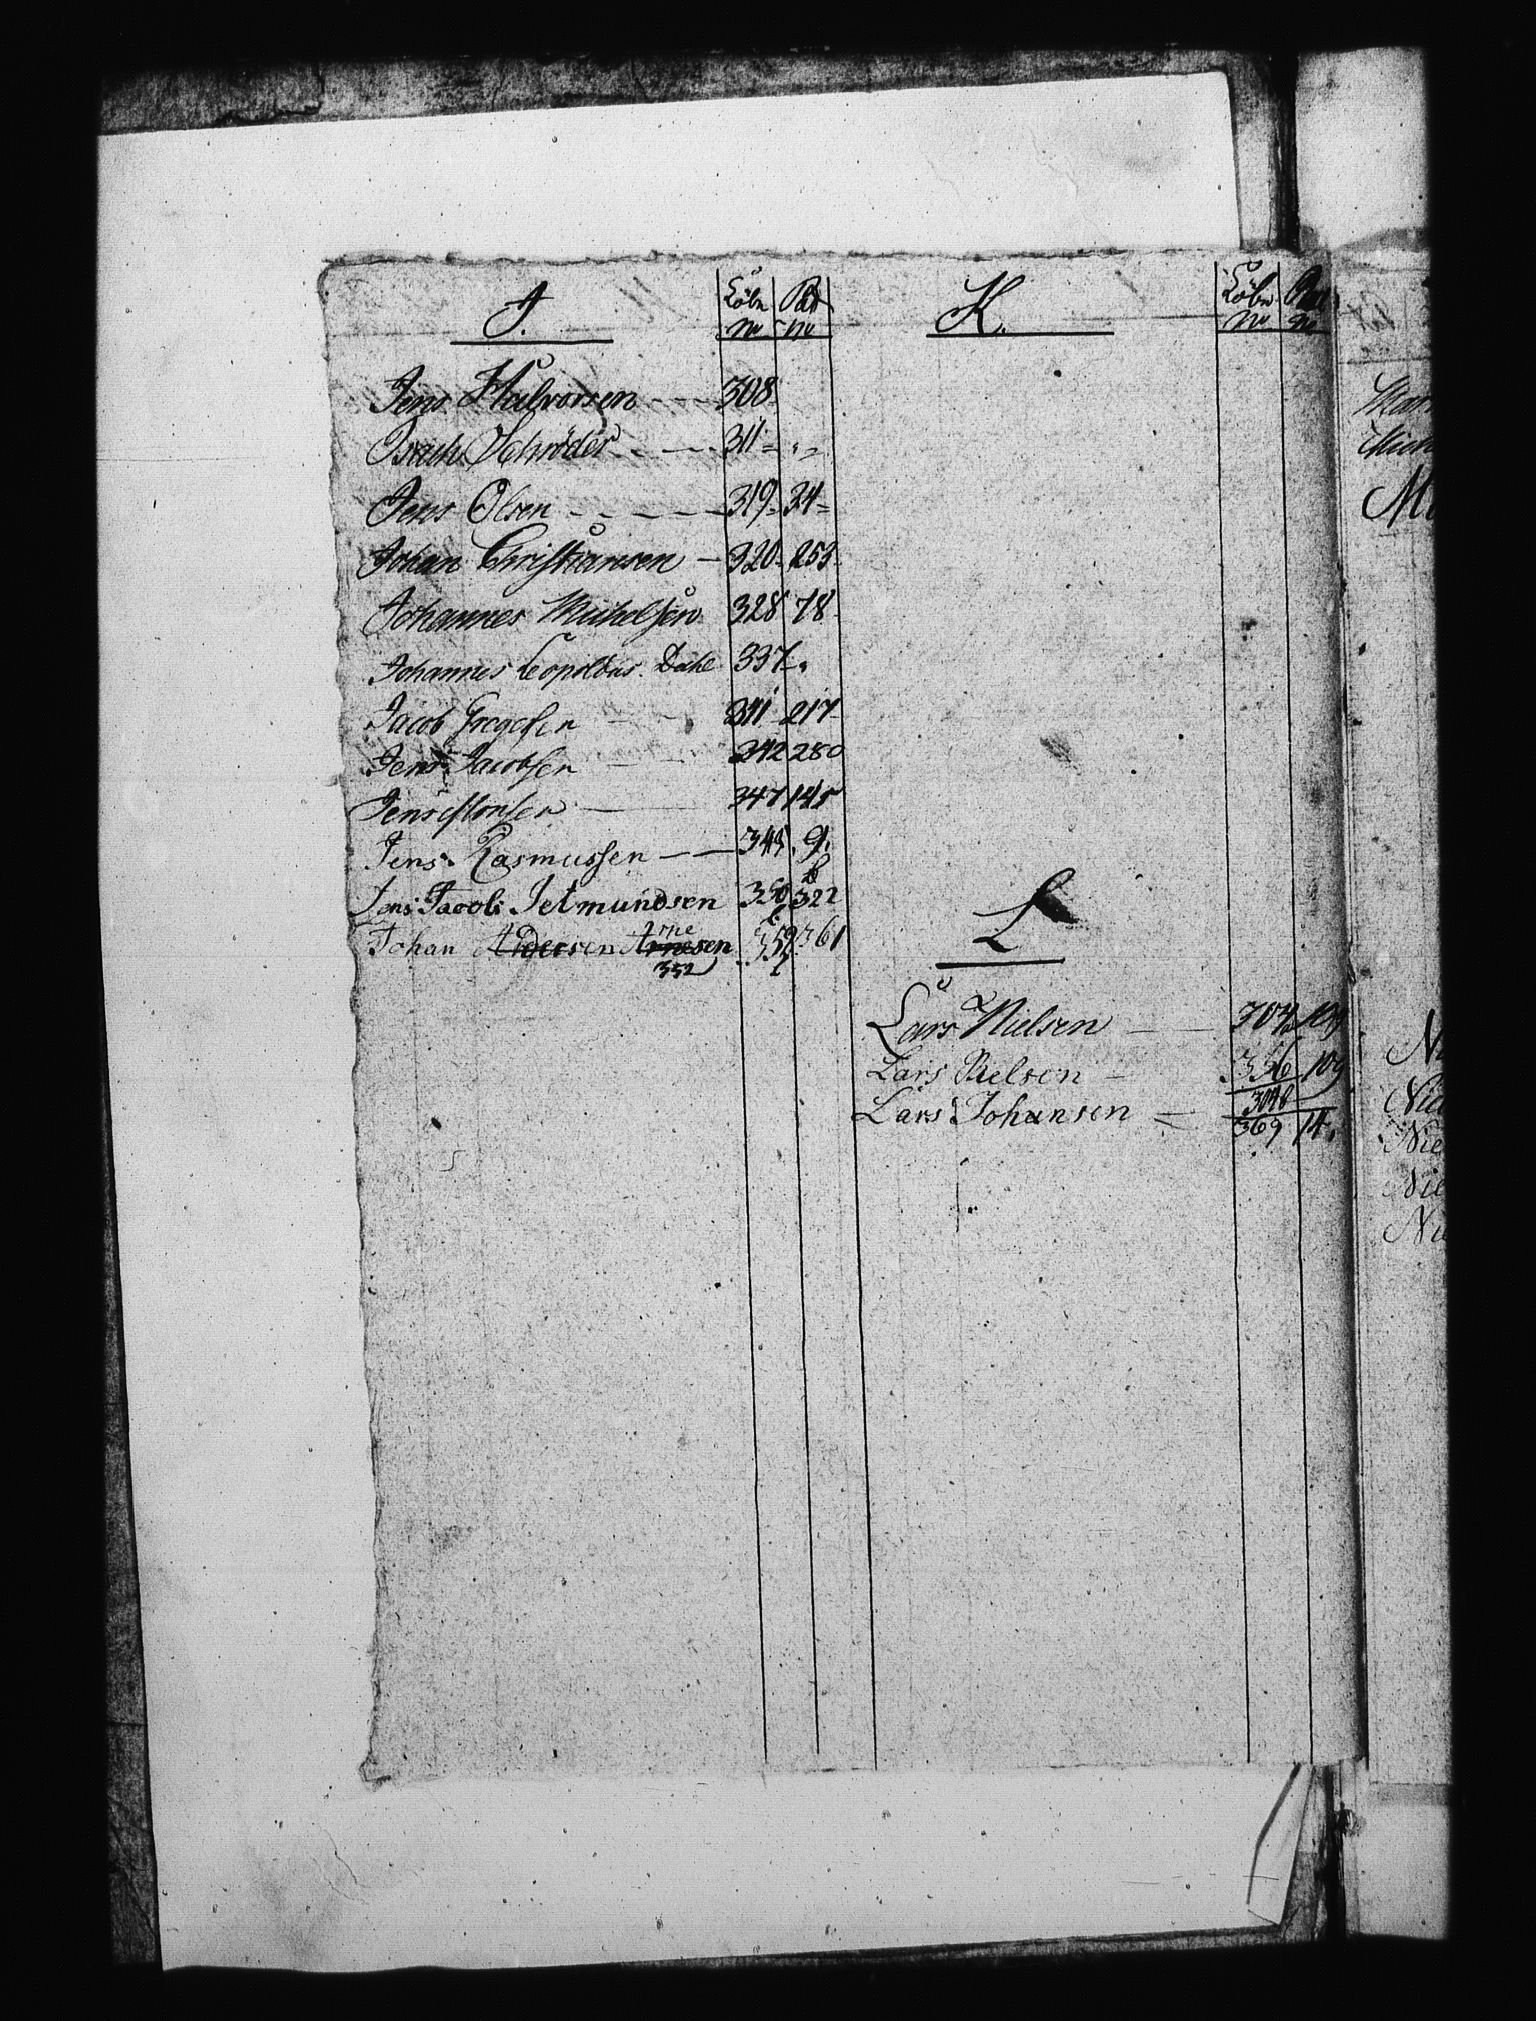 J. Löbe No Pat No
Jens Halvorsen 308
Isach Schrøder 311 = " =
Jens Olsen 319 = 34 =
Johan Christiansen 320 - 253 -
Johannes Michelsen 328 78 -
Johannes Leopoldus Dahl 337 - "
Jacob Gregersen 341 217 -
Jens Jacobsen 342 280
Jens 347 145
Jens Rasmussen 349. 9.
Jens Jacob Jetmundsen 350 322
Johan Andersen Arnesen 361
352
K. Löbe No Pat No
L
Lars Nielsen 304 109
Lars Nielsen 356 109
Lars Johansen 369 14.